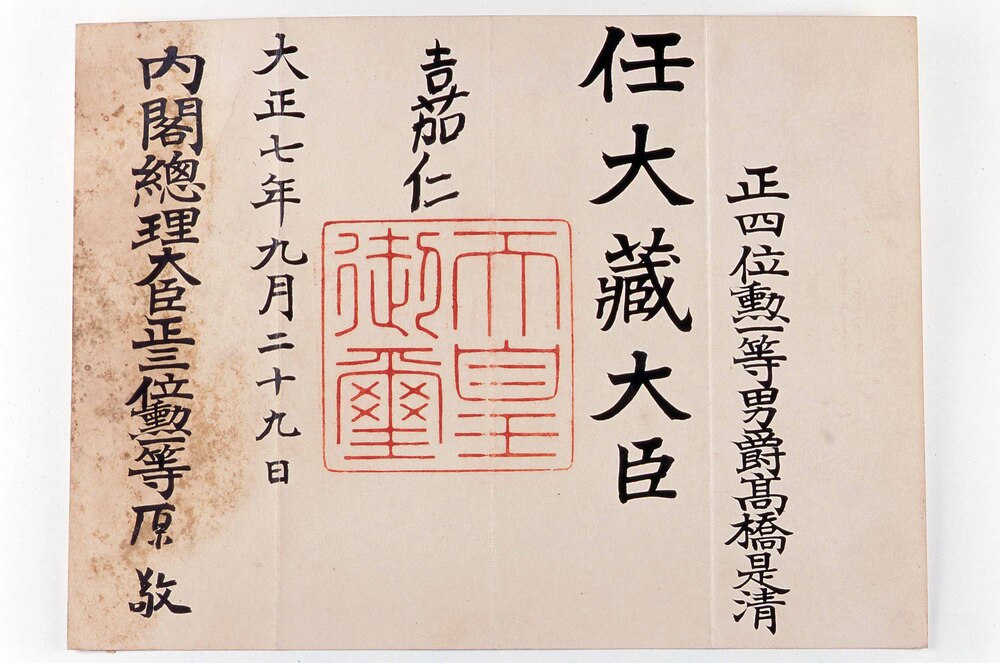 正四位勳一等男爵髙橋是清
任大藏大臣
嘉仁
天皇御璽
大正七年九月二十九日
内閣總理大臣正三位勳一等原敬